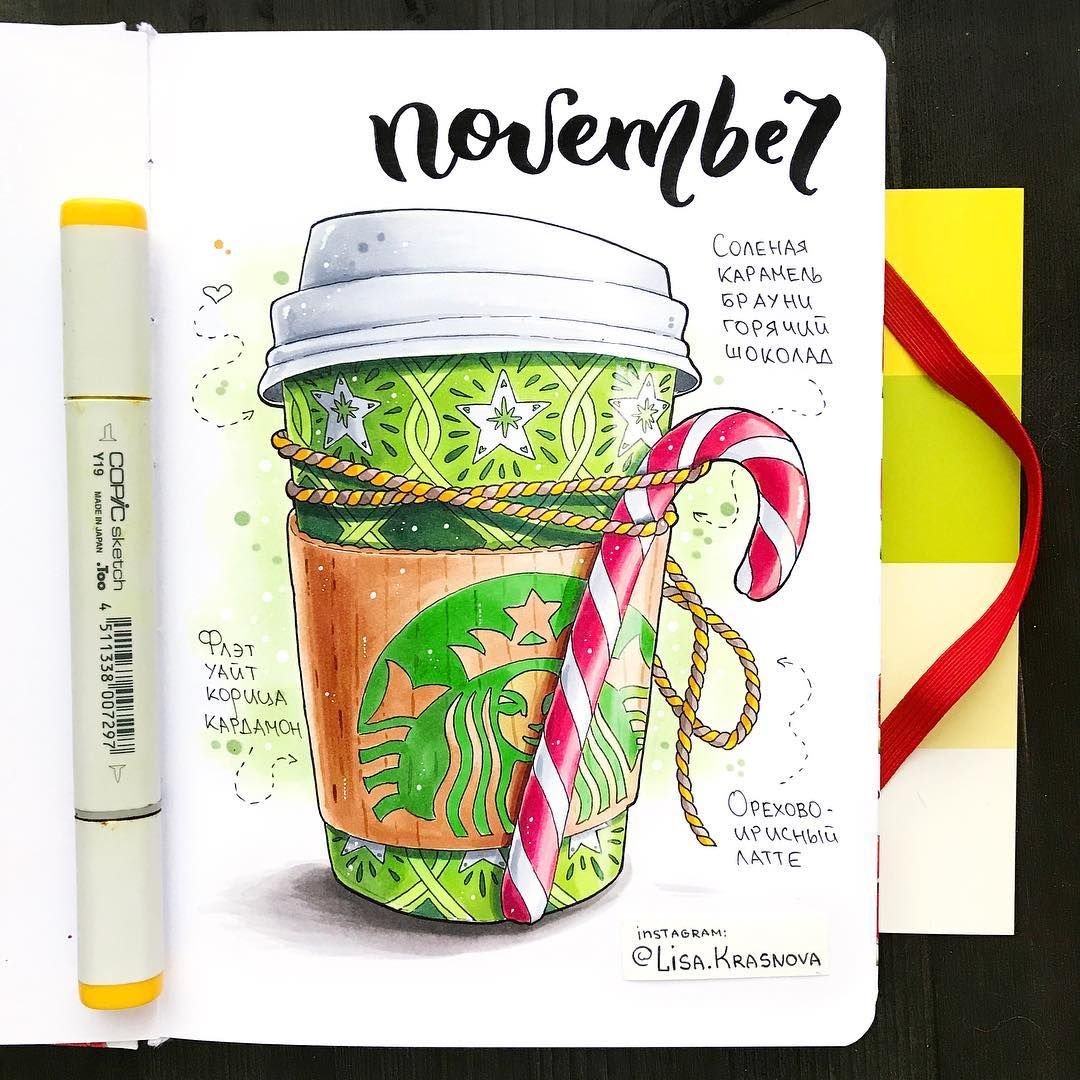 november
СОЛЕНАЯ
КАРАМЕЛЬ
БРАУНИ
ГОРЯЧИЙ
ШОКОЛАД
ФЛЭТ
УАЙТ
КОРИЦА
КАРДАМОН
ОРЕХОВО-
ИРИСНЫЙ
ЛАТТЕ
INSTAGRAM:
@LISA.KRASNOVA
COPIC sketch
Y19 MADE IN JAPAN .Too
4 511338 007297